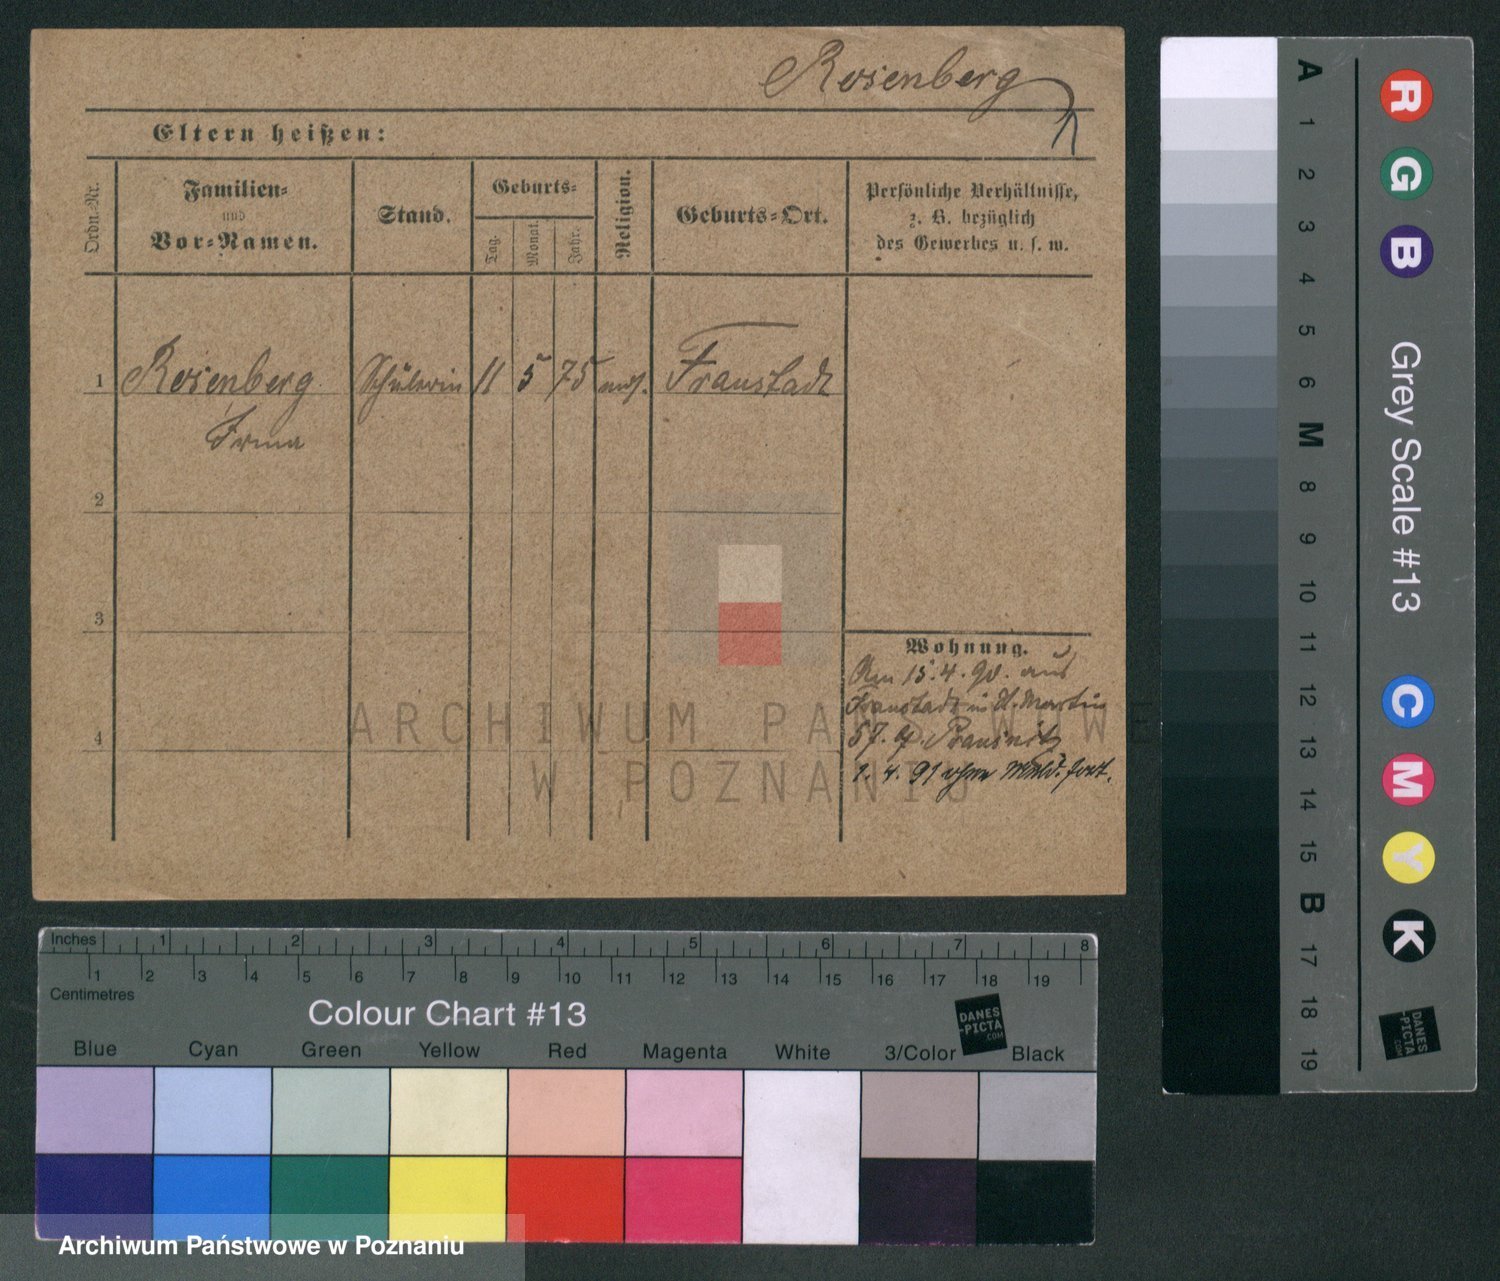 Rosenberg
Eltern heißen:
Ordn.-Nr.
Familien-
und
Vor-Namen.
Stand.
Geburts-
Tag.
Monat.
Jahr.
Religion.
Geburts-Ort.
Persönliche Verhältnisse,
z. B. bezüglich
des Gewerbes u. s. w.
1 Rosenberg Schülerin 11 5 75 mos. Fraustadt
Irma
2
3
4
Wohnung.
Am 15.4.90. aus
Fraustadt in St. Martin
57. b. Prausnitz
1. 4. 91 ohne Meld. fort.
ARCHIWUM PAŃSTWOWE
W POZNANIU
Inches 1 2 3 4 5 6 7 8
1 2 3 4 5 6 7 8 9 10 11 12 13 14 15 16 17 18 19
Centimetres
Colour Chart #13
DANES
-PICTA
.COM
Blue Cyan Green Yellow Red Magenta White 3/Color Black
Archiwum Państwowe w Poznaniu
A 1 2 3 4 5 6 M 8 9 10 11 12 13 14 15 B 17 18 19
R G B
Grey Scale #13
C M Y K
DANES
-PICTA
.COM